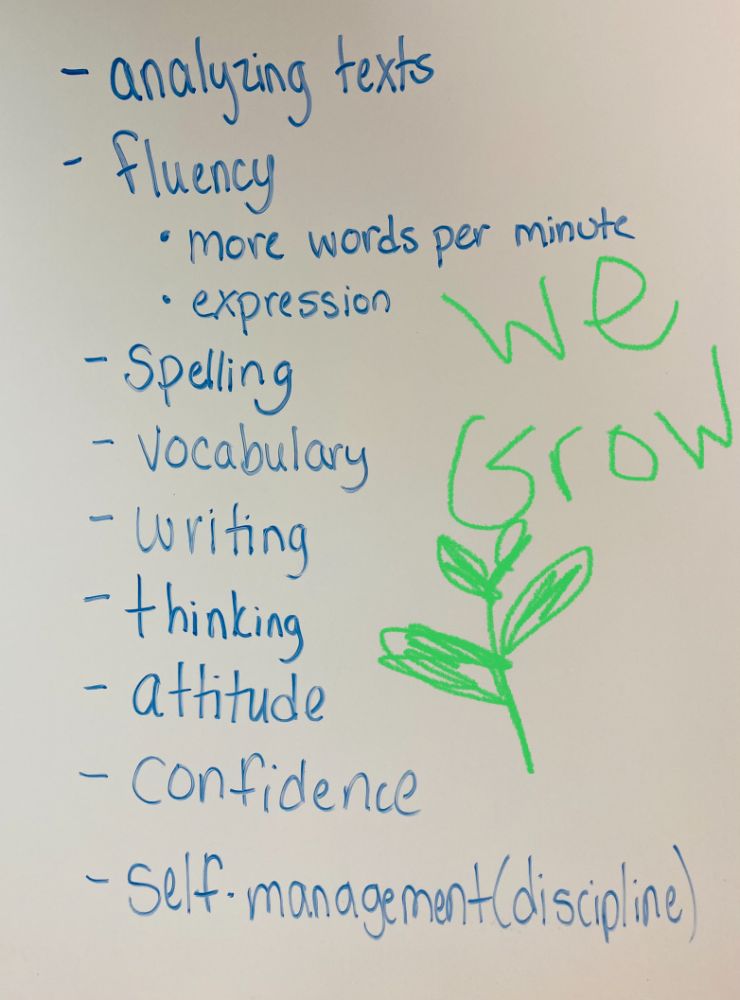 - analyzing texts
- fluency
• more words per minute
• expression
- Spelling
- Vocabulary
- writing
- thinking
- attitude
- Confidence
- Self-management (discipline)
We
Grow